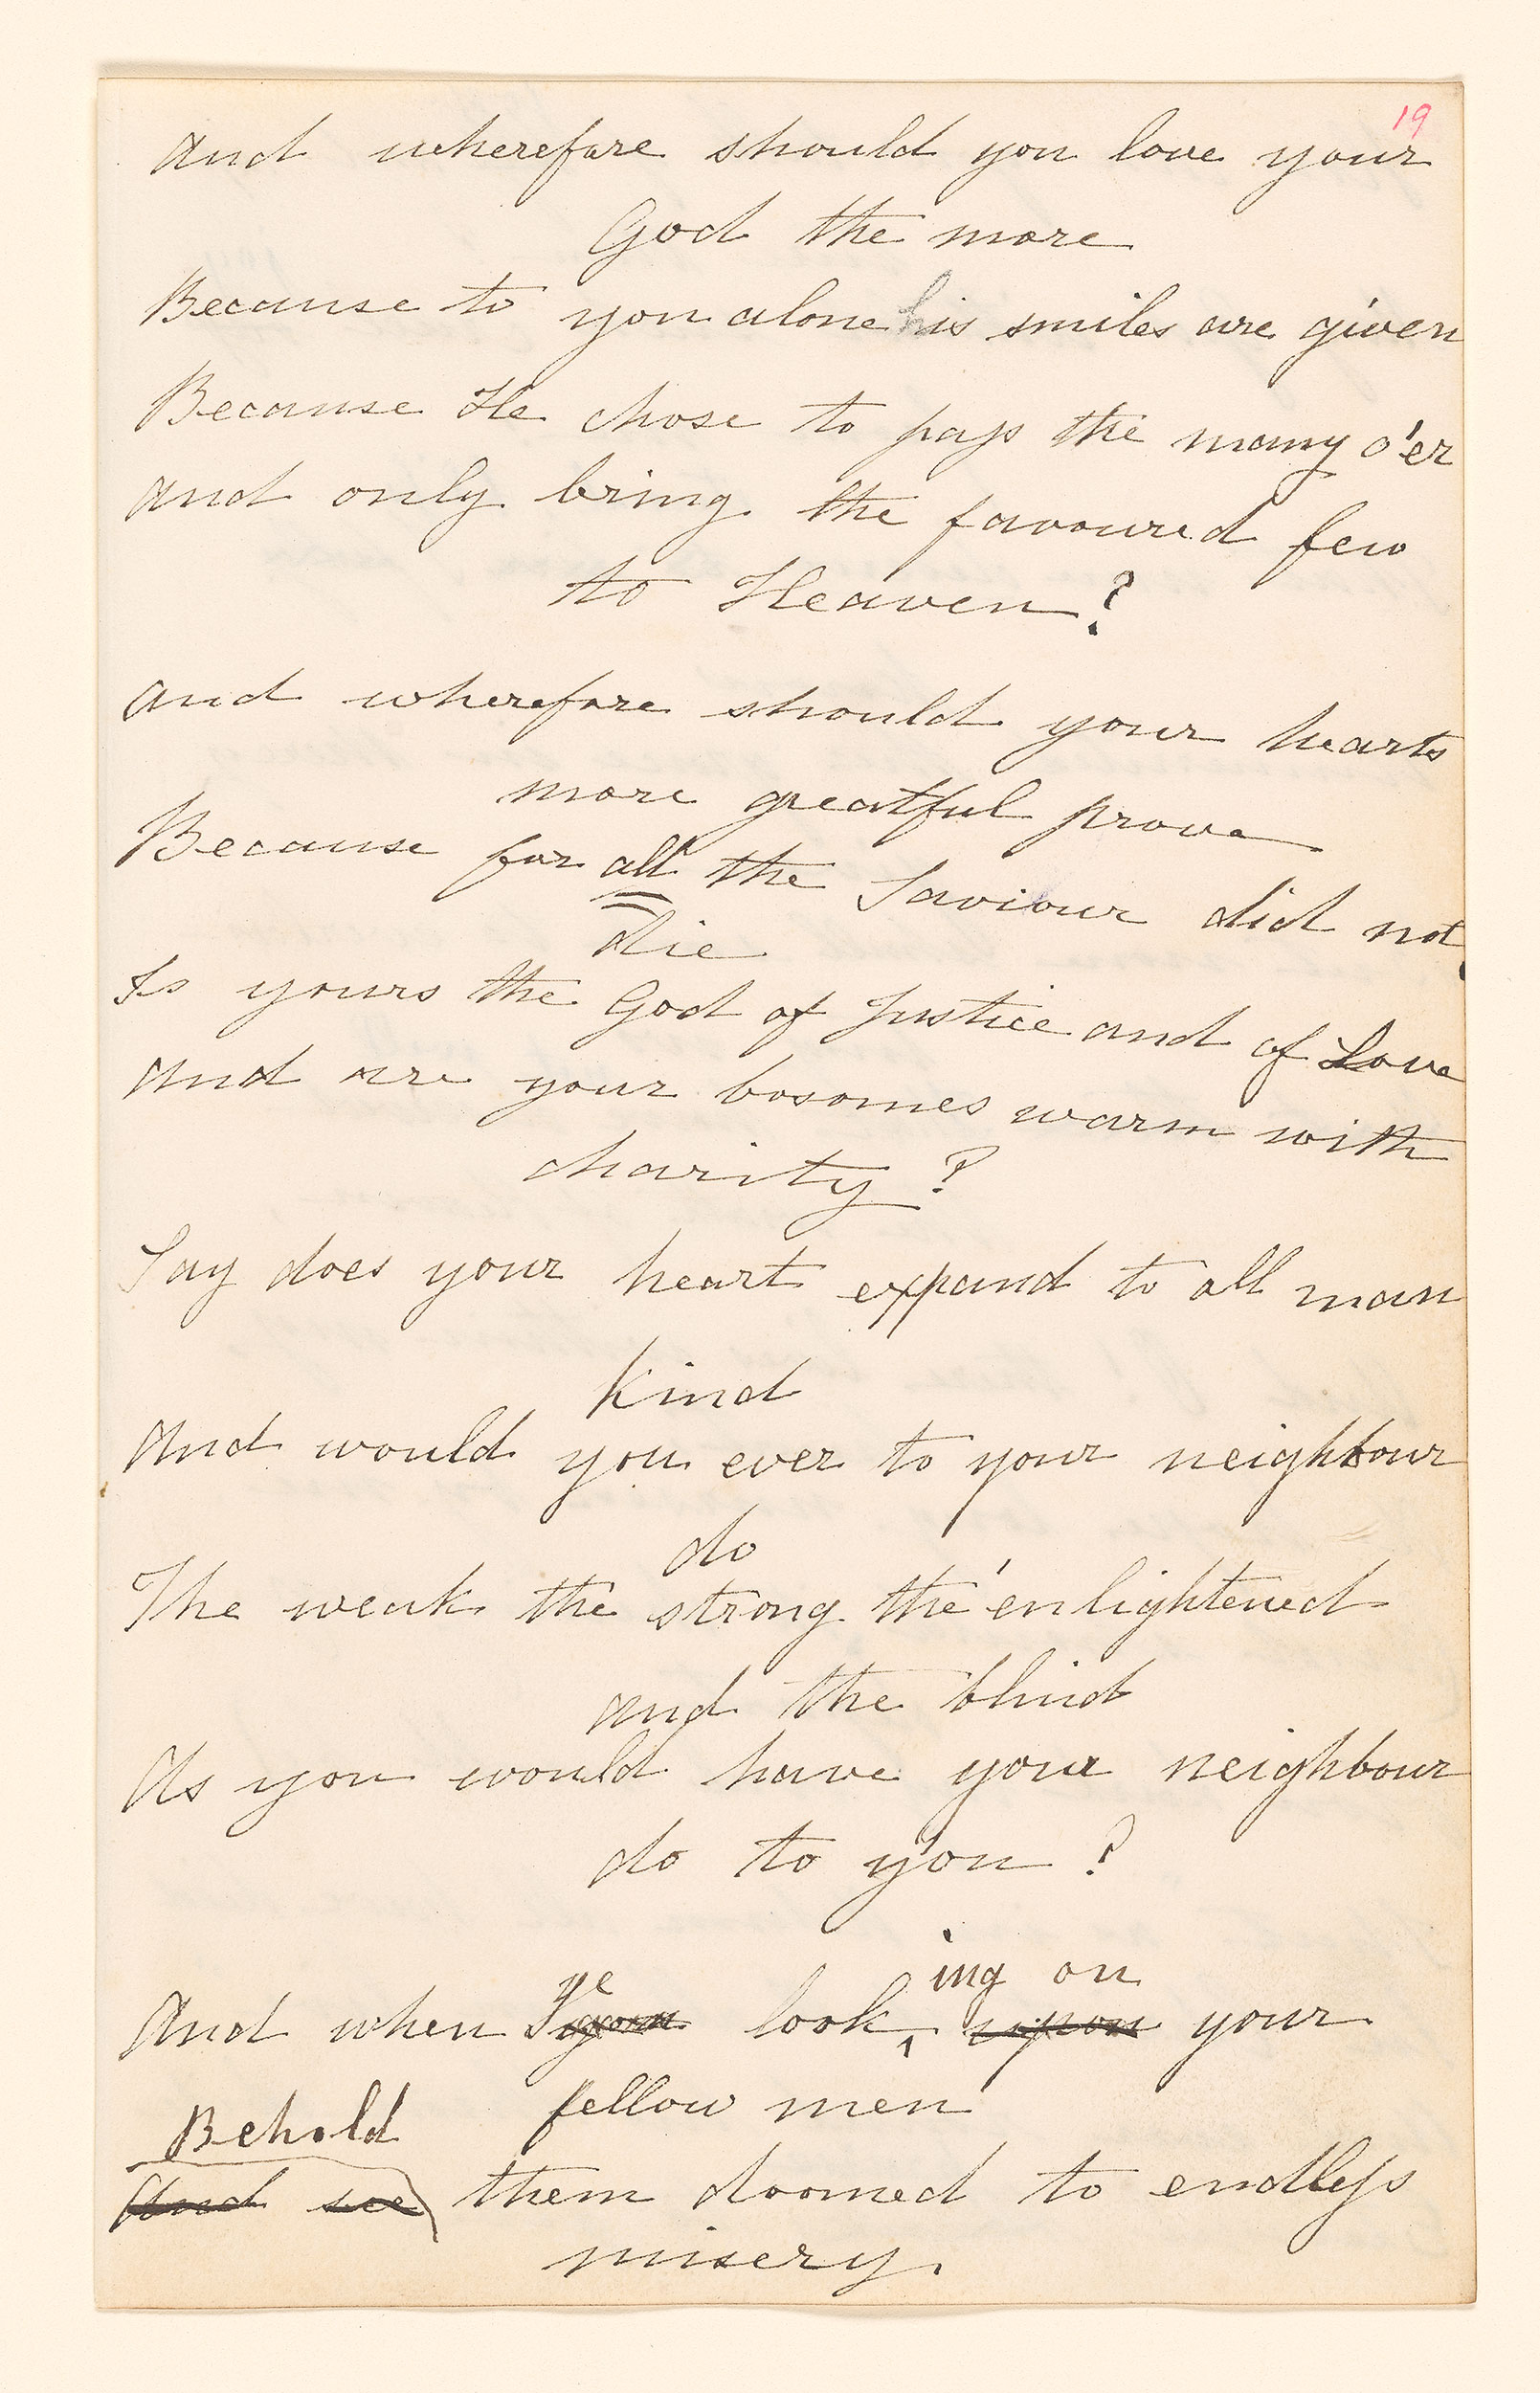 19
And wherefore should you love your
God the more
Because to you alone his smiles are given
Because He chose to pass the many o'er
And only bring the favoured few
to Heaven?
And wherefore should your hearts
more greatful prove
Because for all the Saviour did not
die
Is yours the God of Justice and of Love
And are your bosomes warm with
charity?
Say does your heart expand to all man
kind
And would you ever to your neighbour
do
The weak the strong the enlightened
and the blind
As you would have your neighbour
do to you?
ye ing on
And when you look upon your
fellow men
Behold
And see them doomed to endless
misery.